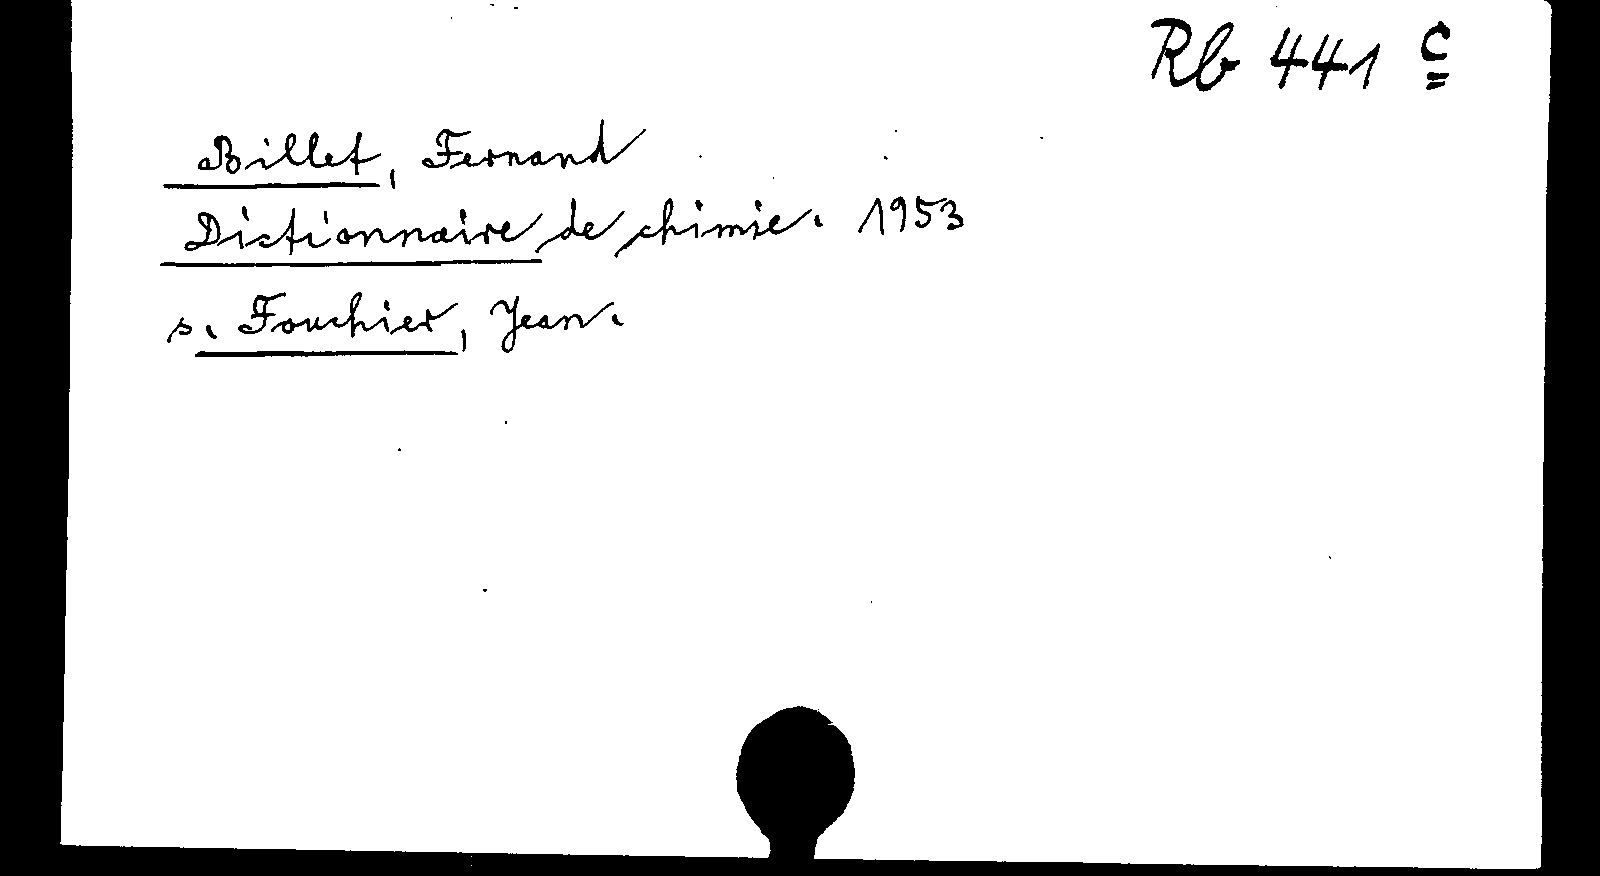 Rb 441 c
Billet, Fernand
Dictionnaire de chimie. 1953
s. Fouchier, Jean.